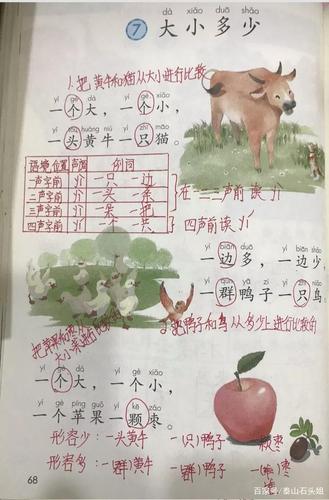 dà xiǎo duō shǎo
7 大小多少
1.把黄牛和猫从大小进行比较
yí gè dà, yí gè xiǎo,
一个大,一个小,
yì tóu huáng niú yì zhī māo
一头黄牛一只猫。
语境位置 声调 例词
一声字前 yì 一只 一边
二声字前 yì 一头 一条
三声字前 yì 一朵 一把
四声字前 yí 一个 一共
在一二三声前读 yì
四声前读 yí
yì biān duō yì biān shǎo
一边多,一边少,
yì qún yā zi yì zhī niǎo
一群鸭子一只鸟。
2.把鸭子和鸟从多少上进行比较
把苹果和枣从大小来进行比较
yí gè dà yí gè xiǎo
一个大,一个小,
yí gè píng guǒ yì kē zǎo
一个苹果一颗枣。
形容少:一头黄牛 一(只)鸭子 一颗枣
形容多:一(群)黄牛 一(群)鸭子 一( )枣
68
百家号/泰山石头姐